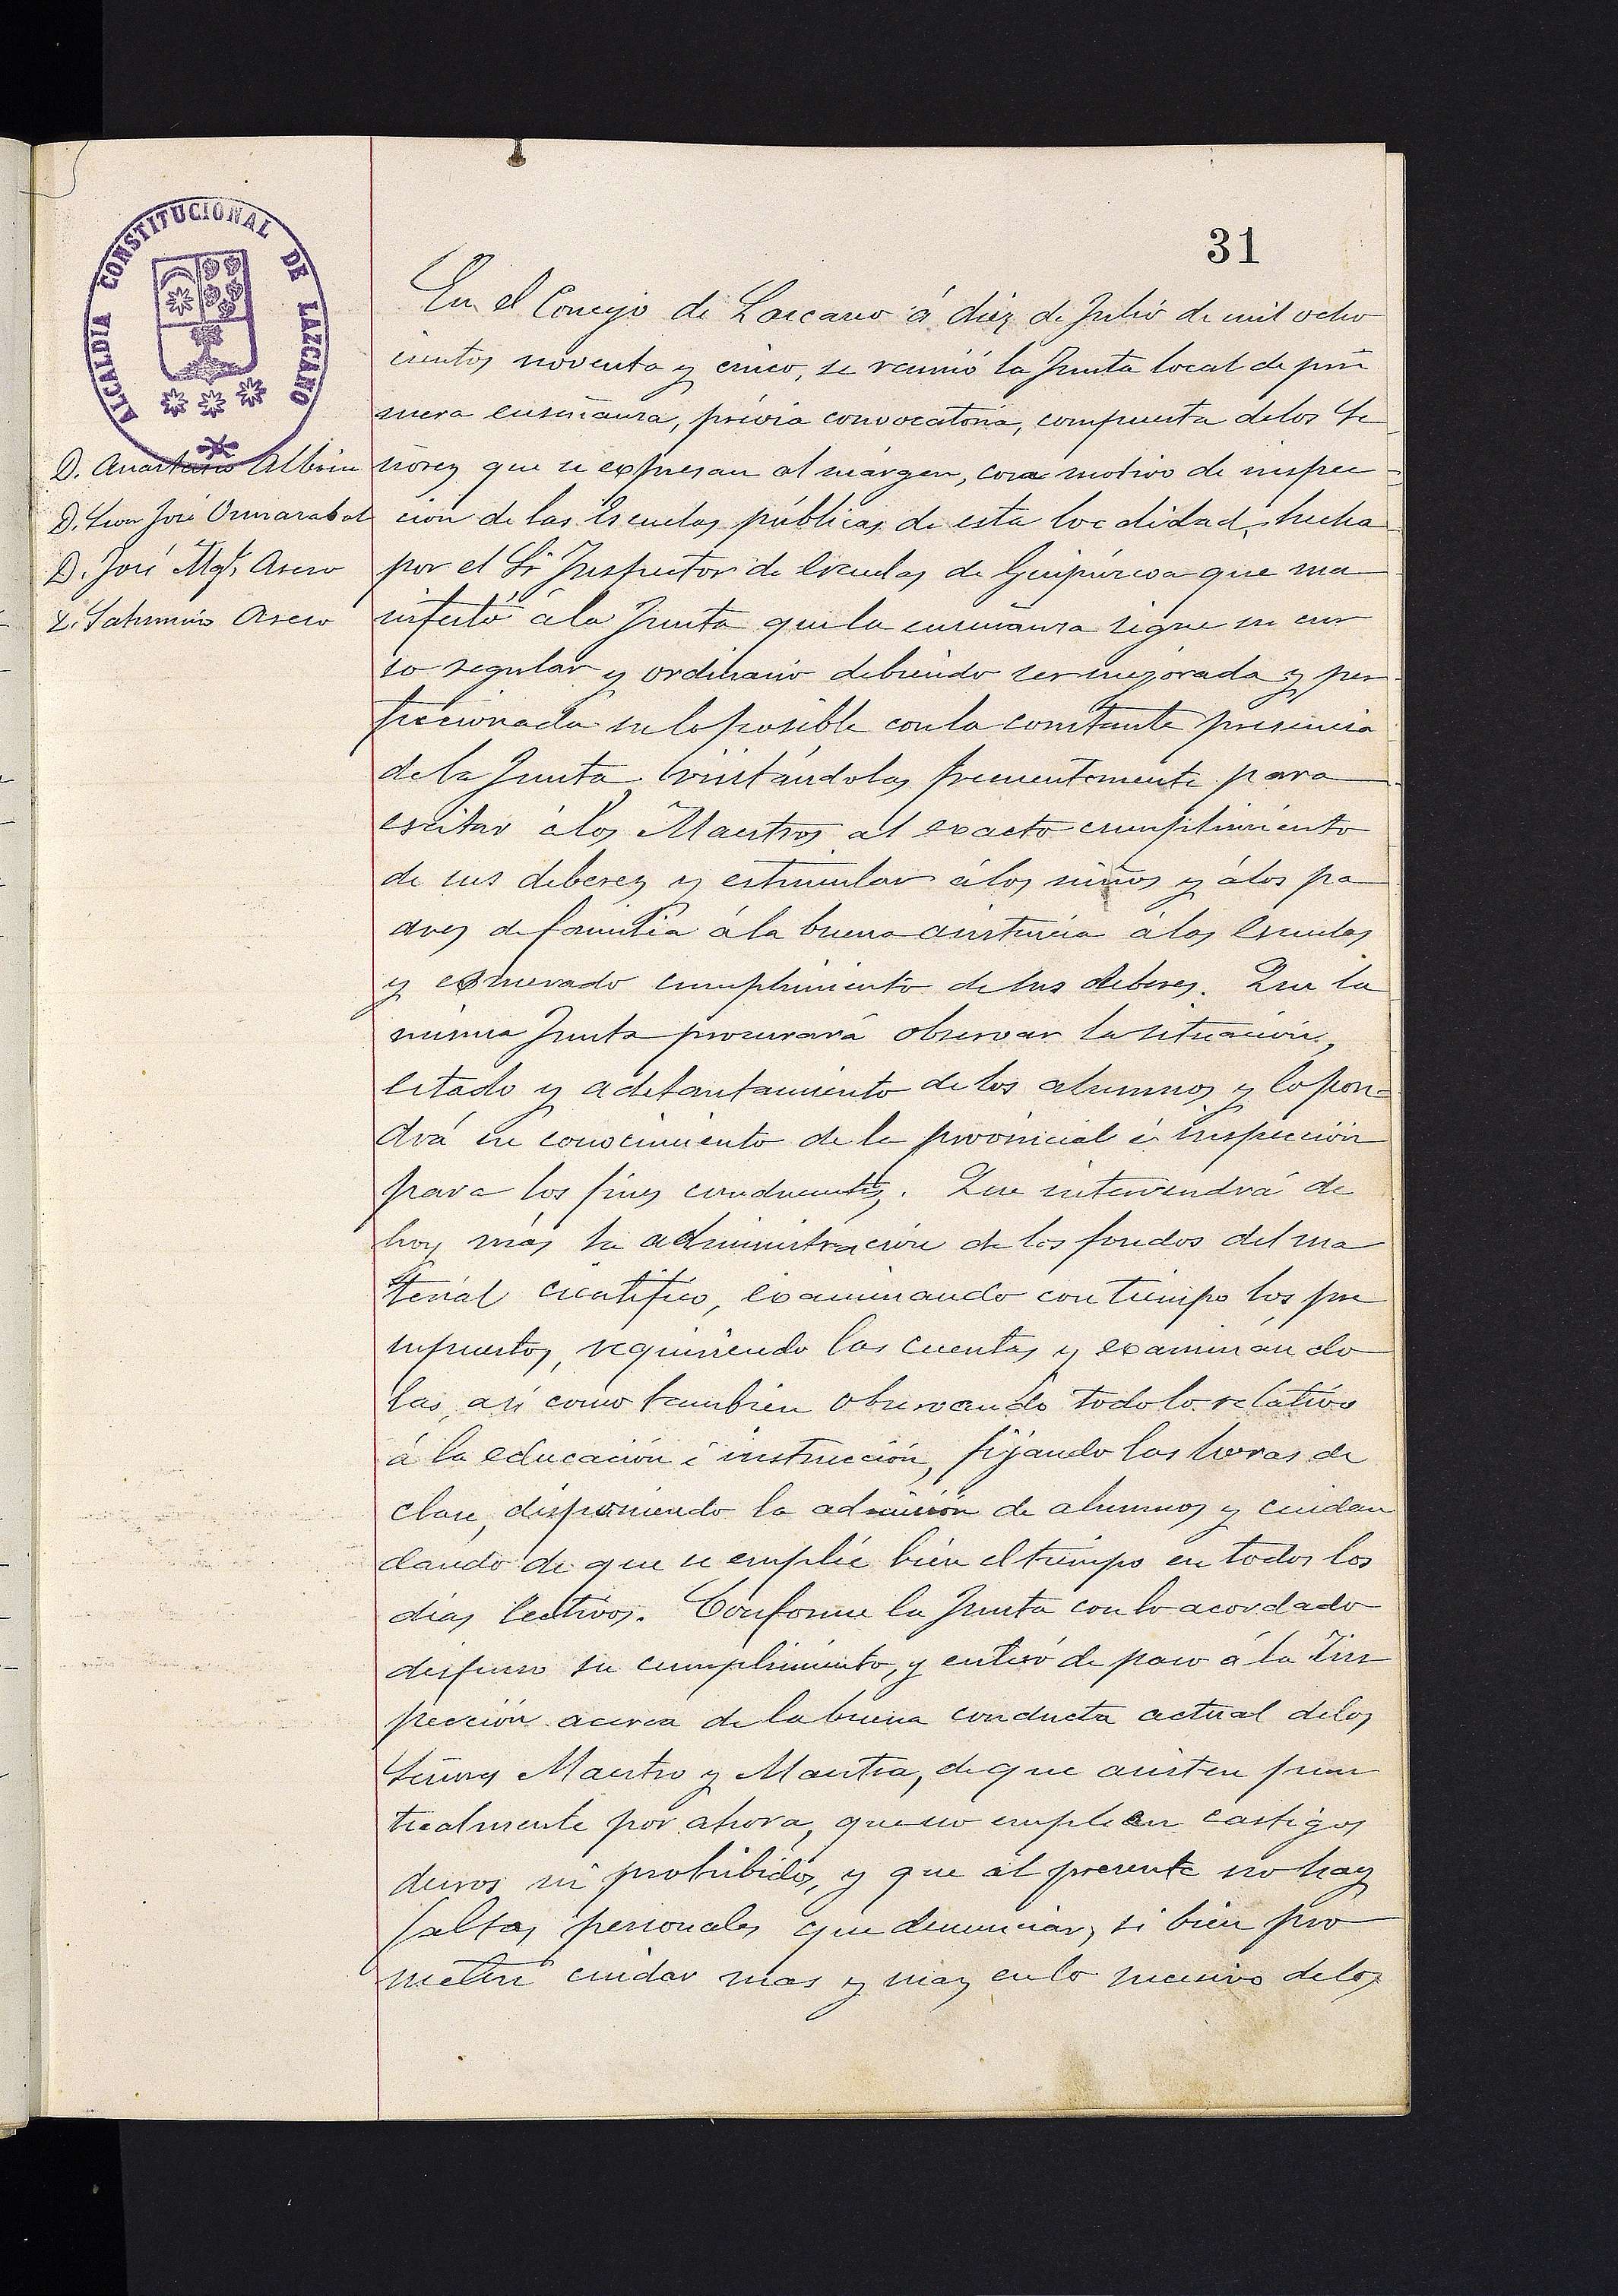 31
ALCALDIA CONSTITUCIONAL DE LAZCANO
D. Anastasio Albisu
D. Leon José Urmarabal
D. José Mgl. Asero
D. Saturnino Asero
En el Concejo de Lazcano á diez de Julio de mil ocho
cientos noventa y cinco, se reunió la Junta local de pri
mera enseñanza, prévia convocatoria, compuesta delos Se
ñores que se expresan al márgen, con motivo de inspec
cion de las Escuelas públicas de esta localidad, hecha
por el Sr Inspector de Escuelas de Guipúzcoa que ma
nifestó á la Junta que la enseñanza sigue su cur
so regular y ordinario debiendo ser mejorada y per
feccionada en lo posible con la constante presencia
de la Junta visitándolas frecuentemente para
escitar á los Maestros al exacto cumplimiento
de sus deberes y estimular á los niños y á los pa
dres de familia á la buena asistencia á las Escuelas
y esmerado cumplimiento de sus deberes. Que la
misma Junta procurará observar la situación,
estado y adelantamiento de los alumnos y lo pon-
drá en conocimiento de la provincial é inspección
para los fines conducentes. Que intervendrá de
hoy más la administración de los fondos del ma
terial cientifico, examinando con tiempo los pre
supuestos, requiriendo las cuentas y examinándo
las, asi como tambien observando todo lo relativo
á la educación é instrucción, fijando las horas de
clase, disponiendo la admisión de alumnos y cuidan
dando de que se emplée bien el tiempo en todos los
dias lectivos. Conforme la Junta con lo acordado
dispuso su cumplimiento, y enteró de paso á la Ins
pección acerca de la buena conducta actual delos
Señores Maestro y Maestra, de que asisten pun
tualmente por ahora, que no emplean castigos
duros ni prohibidos, y que al presente no hay
faltas personales que denunciar, si bien pro
meten cuidar mas y mas en lo sucesivo delos